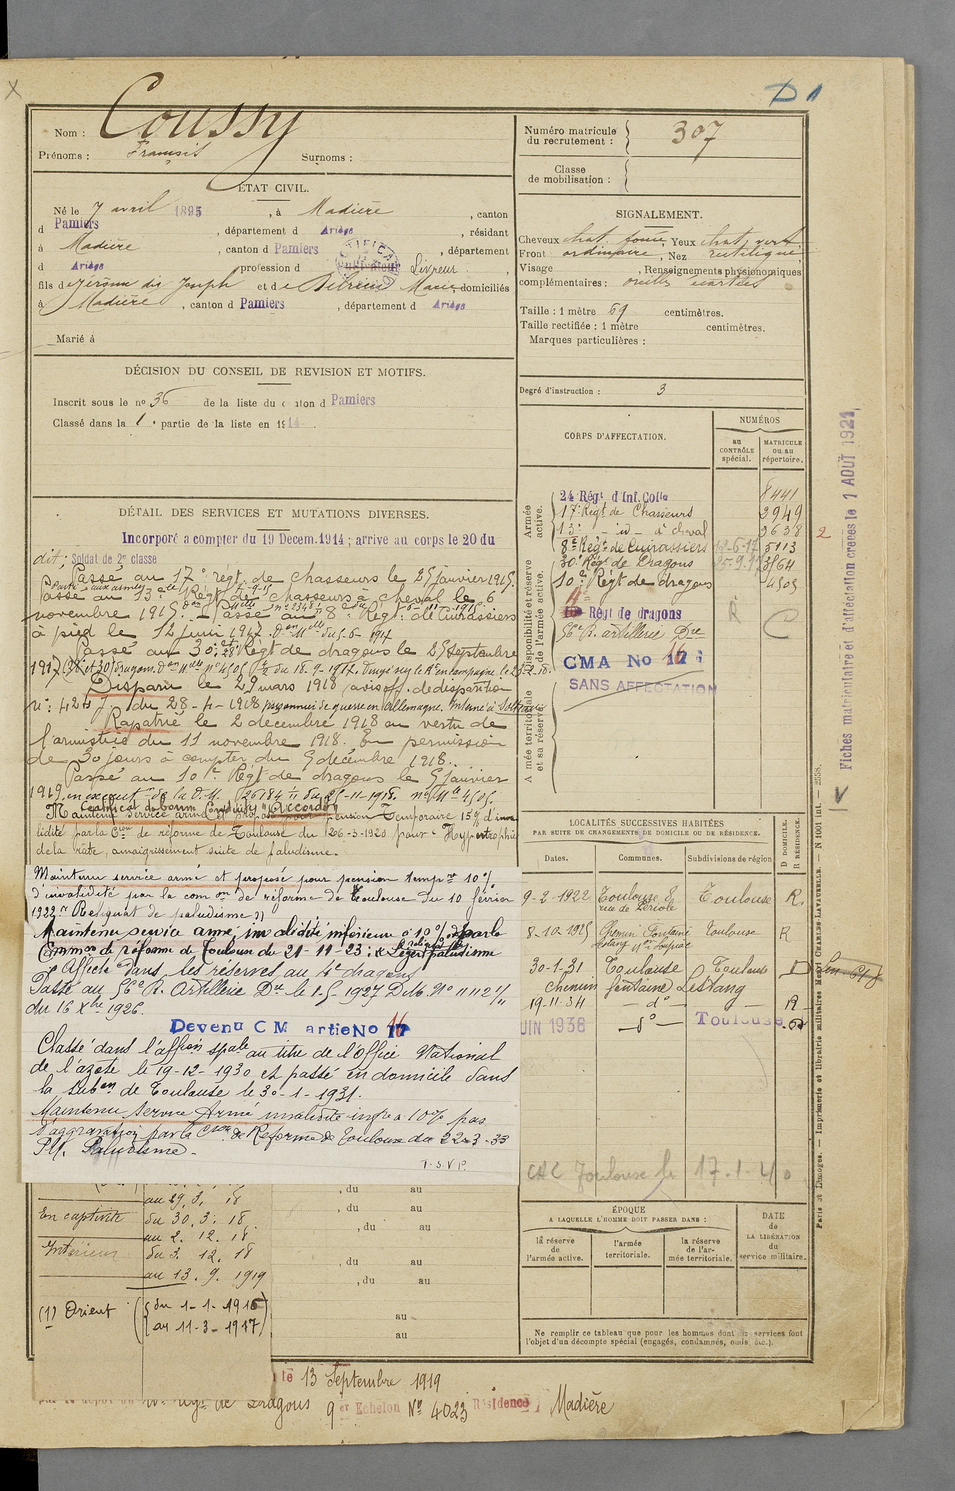 D 1
Nom : Coussy
Prénoms : François Surnoms :
Numéro matricule du recrutement : 307
Classe de mobilisation :
ÉTAT CIVIL.
Né le 7 avril 1895, à Madière, canton
d Pamiers, département d Ariège, résidant
à Madière, canton d Pamiers, département
d Ariège, profession d Cultivateur Livreur
fils de Jérôme dit Joseph et de Marie domiciliés
à Madière, canton d Pamiers, département d Ariège
Marié à
SIGNALEMENT.
Cheveux chat foncé, Yeux chat vert
Front ordinaire, Nez rectiligne
Visage , Renseignements physionomiques
complémentaires : oreilles écartées
Taille : 1 mètre 69 centimètres.
Taille rectifiée : 1 mètre centimètres.
Marques particulières :
Degré d'instruction : 3
DÉCISION DU CONSEIL DE REVISION ET MOTIFS.
Inscrit sous le no 36 de la liste du canton d Pamiers
Classé dans la 1e partie de la liste en 1914.
DÉTAIL DES SERVICES ET MUTATIONS DIVERSES.
Incorporé a compter du 19 Decem. 1914 ; arrive au corps le 20 du
dit ; Soldat de 2e classe
Passé au 17e régt de chasseurs le 25 janvier 1915.
Passé au 13e Régt de chasseurs à cheval le 6
novembre 1915. Passé au 8e Régt de Cuirassiers
à pied le 12 juin 1917.
Passé au 30e Régt de dragons le 25 septembre
1917
Disparu le 29 mars 1918 (avis off. de disparition
no 4247 du 28-4-1918 prisonnier de guerre en Allemagne. Interné à
Rapatrié le 2 décembre 1918 en vertu de
l'armistice du 11 novembre 1918. En permission
de 30 jours à compter du 5 décembre 1918.
Passé au 10e Régt de dragons le 5 janvier
1919
Certificat de bonne Conduite "Accordé"
Maintenu service armé et proposé pour pension temporaire 15% d'inva
lidité par la Con de réforme de Toulouse du 6-3-1920 pour : Hypertrophie
de la rate, amaigrissement suite de paludisme.
Maintenu service armé et proposé pour pension tempre 10%
d'invalidité par la comon de réforme de Toulouse du 10 février
1922 " Reliquat de paludisme "
Maintenu service armé, invalidité inférieure à 10% par la
Common de réforme de Toulouse du 21-11-23 : Léger reliquat de paludisme
Affecté dans les réserves au 4e dragons
Passé au 56e R. Artillerie Dre le 1-5-1927 D.M. No 11112
du 16 Xbre 1926.
Devenu C M artie No 16
Classé dans l'affon spale au titre de l'office National
de l'azote le 19-12-1930 et passé en domicile dans
la Subon de Toulouse le 30-1-1931.
Maintenu Service Armé invalidité infre à 10% pas
d'aggravation par la Cion de Réforme de Toulouse du 22-3-33
Paludisme.
T.S.V.P.
CORPS D'AFFECTATION.
NUMÉROS
au CONTRÔLE spécial.
MATRICULE ou au répertoire.
Armée active.
Disponibilité et réserve de l'armée active.
Armée territoriale et sa réserve.
24 Régt d'Inf. Colle 8441
17e Régt de Chasseurs 2949
13e - id - à cheval 3638
8e Régt de Cuirassiers 12-6-17 5113
30e Régt de Dragons 25-9-17 3864
10e Régt de dragons 4505
4e Régt de dragons
56e R. artillerie Dre
CMA No 16
SANS AFFECTATION
2
LOCALITÉS SUCCESSIVES HABITÉES
PAR SUITE DE CHANGEMENTS DE DOMICILE OU DE RÉSIDENCE.
Dates. Communes. Subdivisions de région. D DOMICILE. R RÉSIDENCE.
9-2-1922 Toulouse Toulouse R.
8-10-1925 Chemin Fontaine Lestang Toulouse R
30-1-31 Toulouse Toulouse D
Chemin Fontaine Lestang
19-11-34 do R
JUIN 1936 do Toulouse
CAC Toulouse le 17-1-40
ÉPOQUE
A LAQUELLE L'HOMME DOIT PASSER DANS :
la réserve de l'armée active.
l'armée territoriale.
la réserve de l'armée territoriale.
DATE de LA LIBÉRATION du service militaire.
Ne remplir ce tableau que pour les hommes dont les services font
l'objet d'un décompte spécial (engagés, condamnés, omis, etc.).
au 29. 3. 18
En captivité du 30. 3. 18.
au 2. 12. 18
Intérieur du 3. 12. 18
au 13. 9. 1919
(1) Orient du 1-1-1916
au 11-3-1917
, du au
, du au
, du au
, du au
, du au
au
au
le 13 Septembre 1919
de Dragons 9er Echelon No 4023 Résidence Madière
Fiches matriculaire et d'affectation créées le 1 AOUT 1921
Paris et Limoges. — Imprimerie et librairie militaires Henri CHARLES-LAVAUZELLE. — N 1001 int. — 2558.